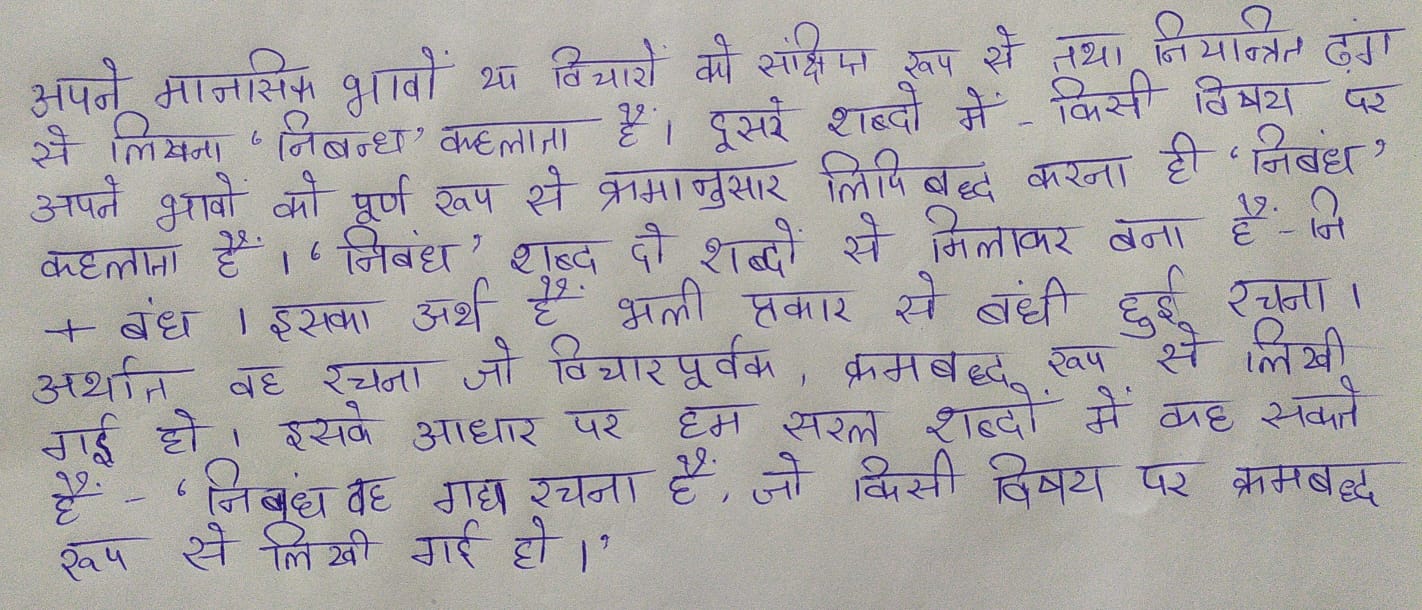 अपने मानसिक भावों या विचारों को संक्षिप्त रूप से तथा नियान्त्रित ढ़ंग
से लिखना ‘निबन्ध’ कहलाता हैं। दूसरे शब्दो में - किसी विषय पर
अपने भावों को पूर्ण रूप से क्रमानुसार लिपि बद्ध करना ही ‘निबंध’
कहलाता हैं। ‘निबंध’ शब्द दो शब्दों से मिलाकर बना हैं - नि
+ बंध । इसका अर्थ हैं भली प्रकार से बंधी हुई रचना।
अर्थात वह रचना जो विचारपूर्वक, क्रमबद्ध रूप से लिखी
गई हो। इसके आधार पर हम सरल शब्दों में कह सकते
हैं - ‘निबंध वह गद्य रचना हैं, जो किसी विषय पर क्रमबद्ध
रूप से लिखी गई हो।’